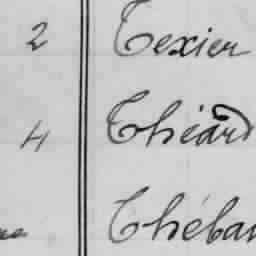 2 Texier
4 Théard
Théba